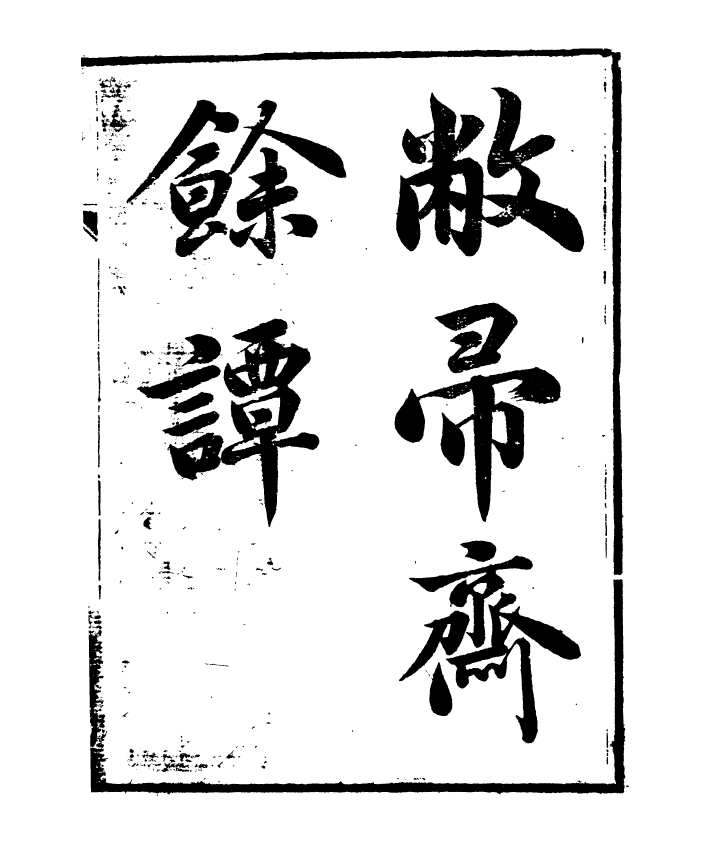 敝帚齋
餘譚